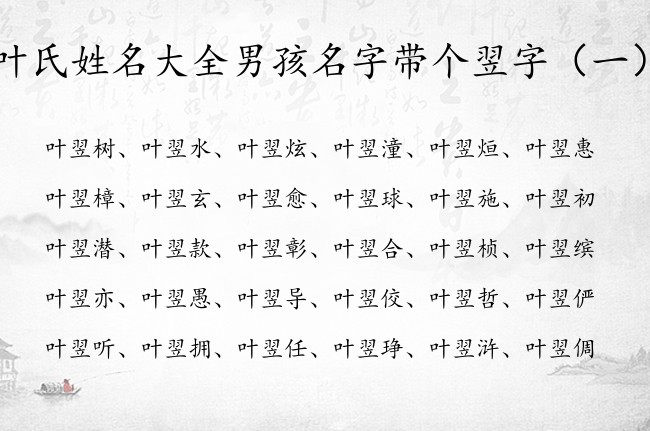 叶氏姓名大全男孩名字带个翌字（一）
叶翌树、叶翌水、叶翌炫、叶翌潼、叶翌烜、叶翌惠
叶翌樟、叶翌玄、叶翌愈、叶翌球、叶翌施、叶翌初
叶翌潜、叶翌款、叶翌彰、叶翌合、叶翌桢、叶翌缤
叶翌亦、叶翌愚、叶翌导、叶翌佼、叶翌哲、叶翌俨
叶翌听、叶翌拥、叶翌任、叶翌琤、叶翌浒、叶翌倜